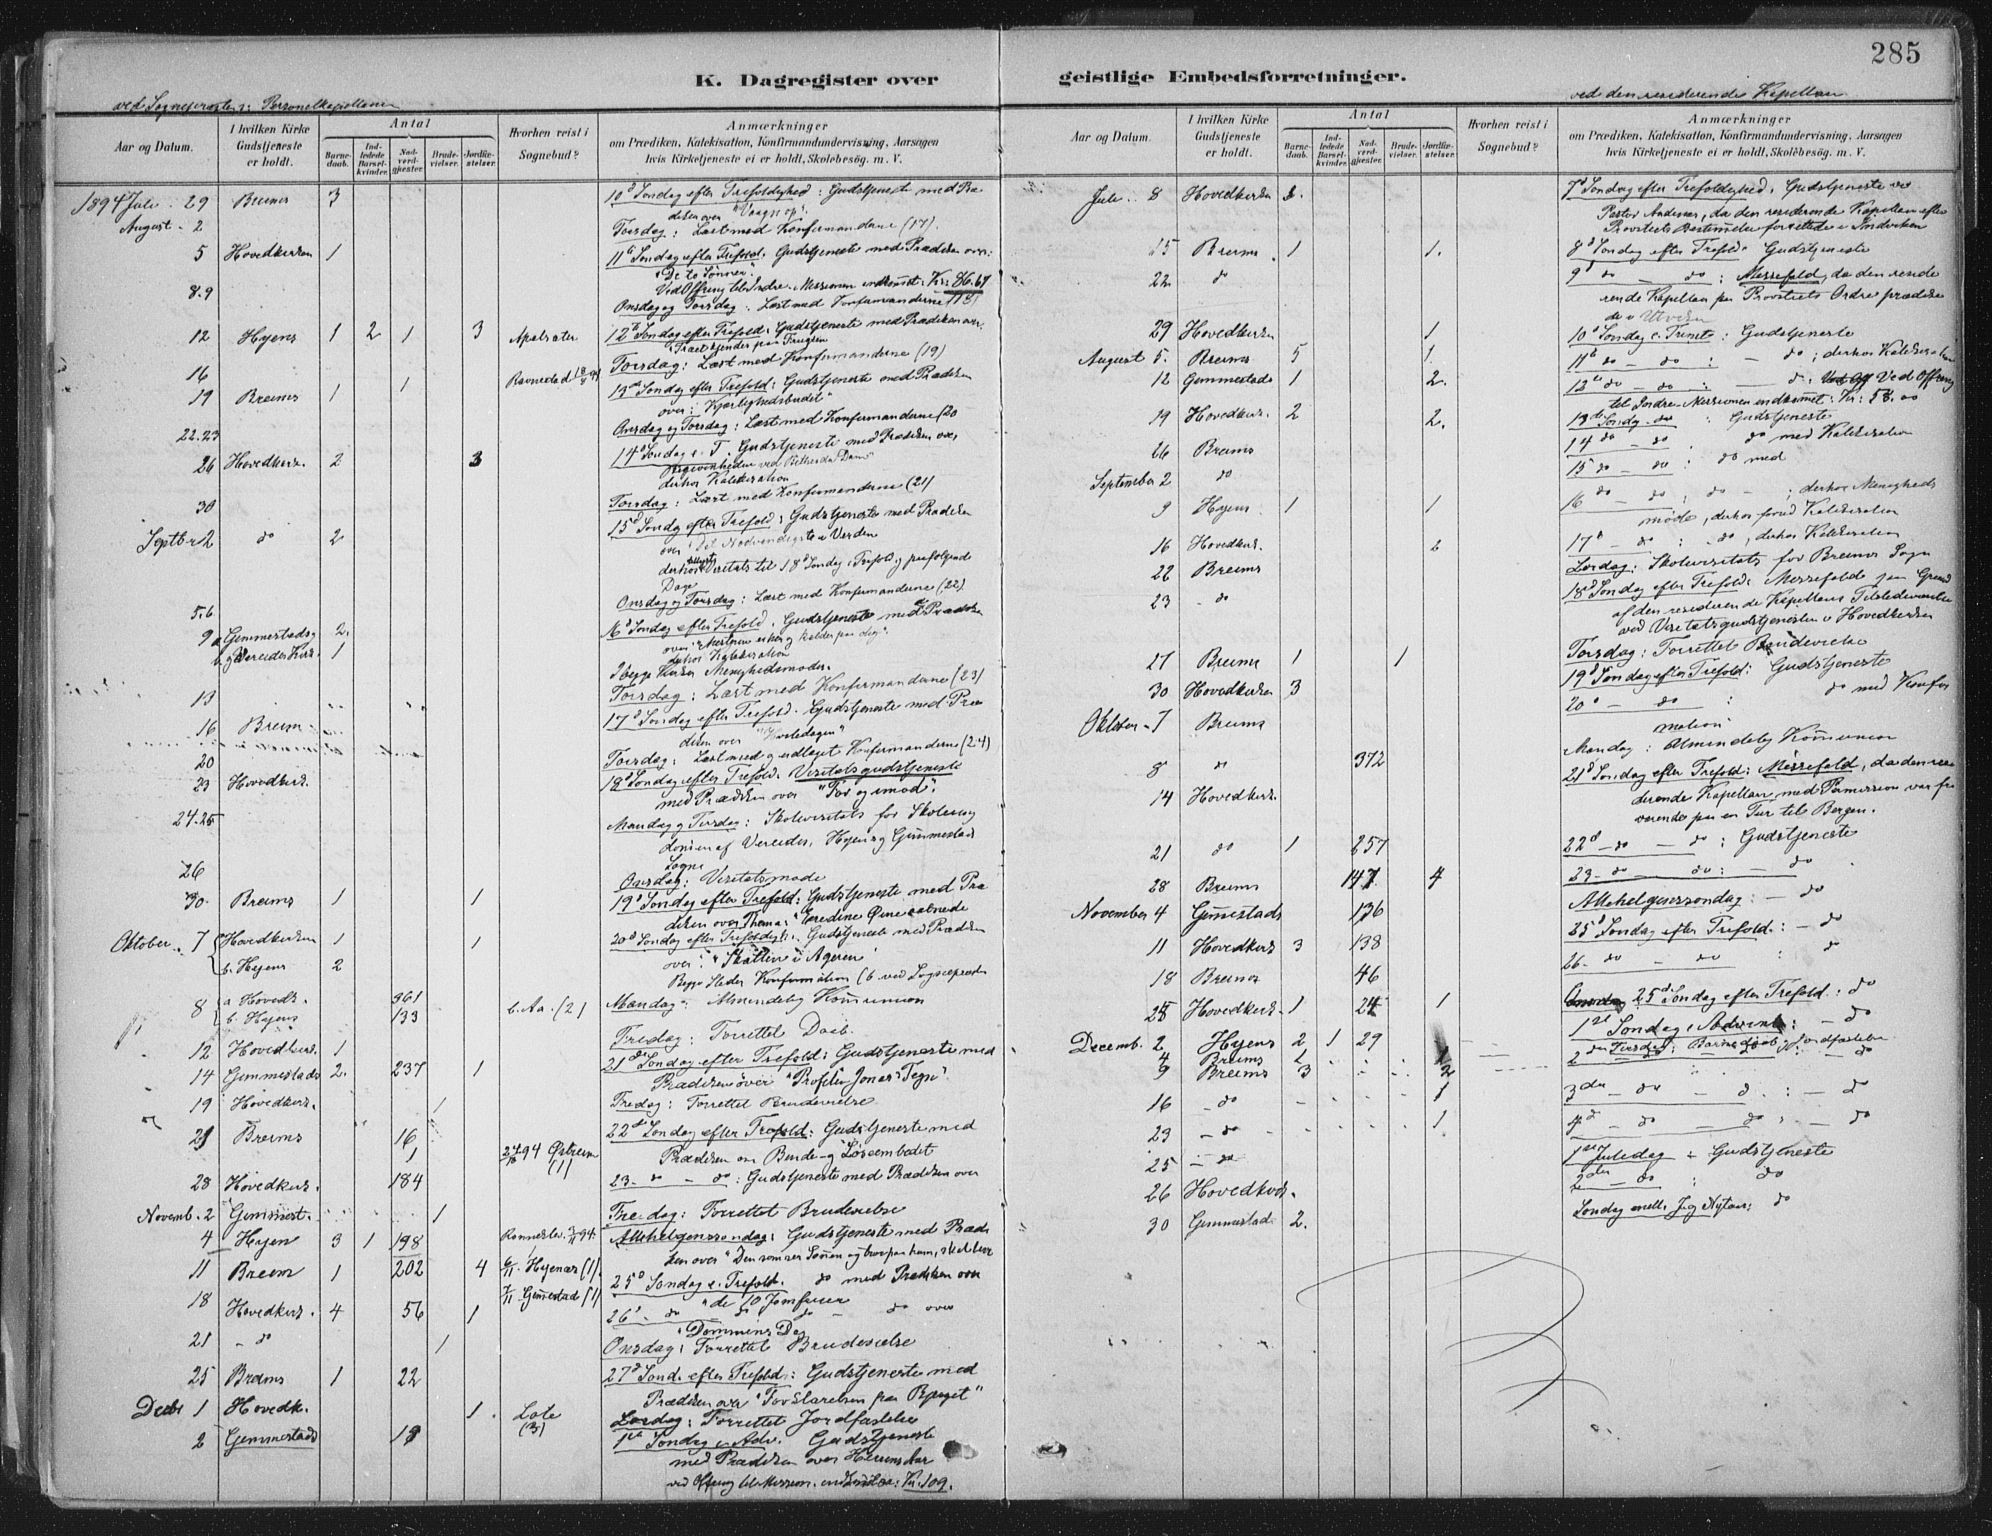 285
K. Dagregister over
geistlige Embedsforretninger.
ved Sognepresten: Personelkapellanen
Aar og Datum.
I hvilken Kirke Gudstjeneste er holdt.
Antal
Barnedaab.
Indledede Barselkvinder.
Nadverdgjester.
Brudevielser.
Jordfæstelser.
Hvorhen reist i Sognebud?
Anmærkninger
om Prædiken, Katekisation, Konfirmandundervisning, Aarsagen
hvis Kirketjeneste ei er holdt, Skolebesøg. m. V.
1894 Juli 29 Breims 3 10d Søndag efter Trefoldighed: Gudstjeneste med Præ
diken over "Vaagn op".
August 2 Torsdag: Læst med Konfirmandene (17).
5 Hovedkirken 1 11te Søndag efter Trefold. Gudstjeneste med Prædiken over:
"De to Sønner".
Ved Offring til Indre-Missionen indkommet: Kr: 86.67
8.9 Onsdag og Torsdag. Læst med Konfirmanderne
12 Hyens 1 2 1 3 Apalsæter 12te Søndag efter Trefold: Gudstjeneste med Prædiken over
"Træet kjendes paa Frugten
16 Torsdag: Læst med Konfirmanderne (19)
19 Breims 1 1 Ravnestad 13de Søndag efter Trefold: Gudstjeneste med Prædiken
over: "Kjærlighedsbudet"
22.23 Onsdag og Torsdag: Læst med Konfirmanderne (20
26 Hovedkirk. 2 3 14d Søndag e. T. Gudstjeneste med Prædiken over
Begivenheden ved Bethesda Dam"
derhos Katekisation
30 Torsdag: Læst med Konfirmanderne (21)
Septbr 2 do 2 15d Søndag efter Trefold: Gudstjeneste med Prædiken
over "Det Nødvendigste i Verden
derhos Visitats til 18d Søndag i Trefold og paafølgende
Dage
5.6 Onsdag og Torsdag: Læst med Konfirmanderne (22)
9 a Gemmestads og 2. 16d Søndag efter Trefold. Gudstjeneste med Prædiken
b. Vereides Kirk. 1 over "Mesteren er her og kalder paa dig".
derhos Katekisation
I begge Kirker Menighedsmøder.
13 Torsdag: Læst med Konfirmanderne (23)
16 Breim 17d Søndag efter Trefold. Gudstjeneste med Præ
diken over "Hviledagen"
20 Torsdag: Læst med og udlæget Konfirmanderne (24)
23 Hovedkirk. 18d Søndag efter Trefold. Visitatsgudstjeneste
med Prædiken over "For og imod".
24.25 Mandag og Tirsdag: Skolevisitats for Skoleung
domen af Vereides, Hyen og Gimmestad
Sogne
26 Onsdag: Visitatsmøde
30 Breims 1 1 19d Søndag efter Trefold: Gudstjeneste med Præ
diken over Thema: "Eredine Øine aabnede
Oktober 7 a Hovedkirken 1 1 20d Søndag efter Trefoldigh. Gudstjeneste med Prædiken
b. Hyens 2 over: "Skatten i Ageren"
Begge Steder Konfirmation (b ved Sognepresten
8 a Hovedk. 361 Mandag: Almindelig Kommunion
b. Hyens 133 b. Aa. (2)
12 Hovedkirk. 1 Fredag: Forrettet Daab.
14 Gimmestads 2. 237 1 21d Søndag efter Trefold: Gudstjeneste med
Prædiken over "Profeten Jonas' Tegn".
19 Hovedkirk. 1 Fredag: Forrettet Brudevielse
21 Breims 16 22de Søndag efter Trefold: Gudstjeneste med
1 24/10 94 Østreim (1) Prædiken om Binde- og Løseembedet
28 Hovedkirk. 184 23- do - do: Gudstjeneste med Prædiken over
Novemb. 2 Gimmest. 1 Fredag: Forrettet Brudevielse
4 Hyen 3 1 198 Allehelgenssøndag: Gudstjeneste med Prædi
ken over "Den som ser Sønnen og tror paa ham, skal leve
11 Breim 1 202 4 6/11. Hyenæs (1). 25d Søndag e. Trefold. do med Prædiken over
7/11. Gimestad (1) "de 10 Jomfruer
18 Hovedkirk. 4 56 1 26d - do do - do over
"Dommens Dag
21 - do 1 Onsdag: Forrettet Brudevielse
25 Breims 1 22 27d Sønd. efter Trefold: Gudstjeneste med
Prædiken over "Forklarelsen paa Bjerget"
Decbr 1 Hovedk. 1. Lote (3) Lørdag: Forrettet Jordfæstelse
2 Gemmestads 19 1ste Søndag i Adv. Gudstjeneste
med Prædiken over Herrens Aar
ved Offring til Mission. indkom: Kr. 109.
ved den residerende Kapellan
Aar og Datum.
I hvilken Kirke Gudstjeneste er holdt.
Antal
Barnedaab.
Indledede Barselkvinder.
Nadverdgjester.
Brudevielser.
Jordfæstelser.
Hvorhen reist i Sognebud?
Anmærkninger
om Prædiken, Katekisation, Konfirmandundervisning, Aarsagen
hvis Kirketjeneste ei er holdt, Skolebesøg. m. V.
Juli 8 Hovedkirken 1. 7d Søndag efter Trefoldighed. Gudstjeneste ved
Pastor Andenæs, da den residerende Kapellan efter
Provstiets Bestemmelse forrettede i Indviken
15 Breims 1 1. 8d Søndag efter Trefold. Gudstjeneste
22 do 9d do - do: Messefald, da den reside
rende Kapellan paa Provstiets Ordre prædike
de i Utviken
29 Hovedkirken 1 10d Søndag e. Trinit: Gudstjeneste
August 5. Breims 5 1. 11te do - do: - do; derhos Katekisation
12 Gemmestads 1 2. 12te do - do: - do: Ved Offring
til Indre-Missionen indkommet: Kr: 58.00
19 Hovedkirk. 2 2. 13de Søndag do: Gudstjeneste
26 Breims 14 do - do: do med Katekisation
September 2 do 15 do - do: do med
9 Hyens 1 1 16 do - do: do - ; derhos Menigheds
møde, derhos forud Katekisation
16 Hovedkirk. 2 17d - do: - do, derhos Katekisation
22 Breims Lørdag: Skolevisitats for Breims Sogn
23 do 18d Søndag efter Trefold: Messefald paa Grund
af den residerende Kapellans Tilstedeværelse
ved Visitatsgudstjenesten i Hovedkirken
27 Breims 1 1 Torsdag: Forrettet Brudevielse
30 Hovedkirken 3 19d Søndag efter Trefold: Gudstjeneste
Oktober 7 Breims 20d - do: do med Konfir
mation
8 do 372 Mandag: Almindelig Kommunion
14 Hovedkirk. 21d Søndag efter Trefold: Messefald, da den resi
derende Kapellan med Permission var fra
værende paa en Tur til Bergen.
21 do 1 257 22d - do - do: Gudstjeneste
28 Breims 147 4 23- do - do: - do
November 4 Gimestads 136 Allehelgenssøndag: - do
11 Hovedkirk 3 138 25d Søndag efter Trefold: - do
18 Breims 46 26- do - do: do
25 Hovedkirk. 1 24 1 25d Søndag efter Trefold: do
Decemb. 2 Hyens 2 1 29 1ste Søndag i Advent: - do
4 Breims 1 1 Tirsdag: Barnedaab og Jordfæstelse
9 Breims 3 2 2den - do - do: - do
16 - do 1 3die - do - do: - do
23 - do 1 4d - do - do: - do
25 - do 1ste Juledag - Gudstjeneste
26 Hovedkirk. 2den - do: do
30 Gimmestad 2. Søndag mell. Jul og Nytaar: do